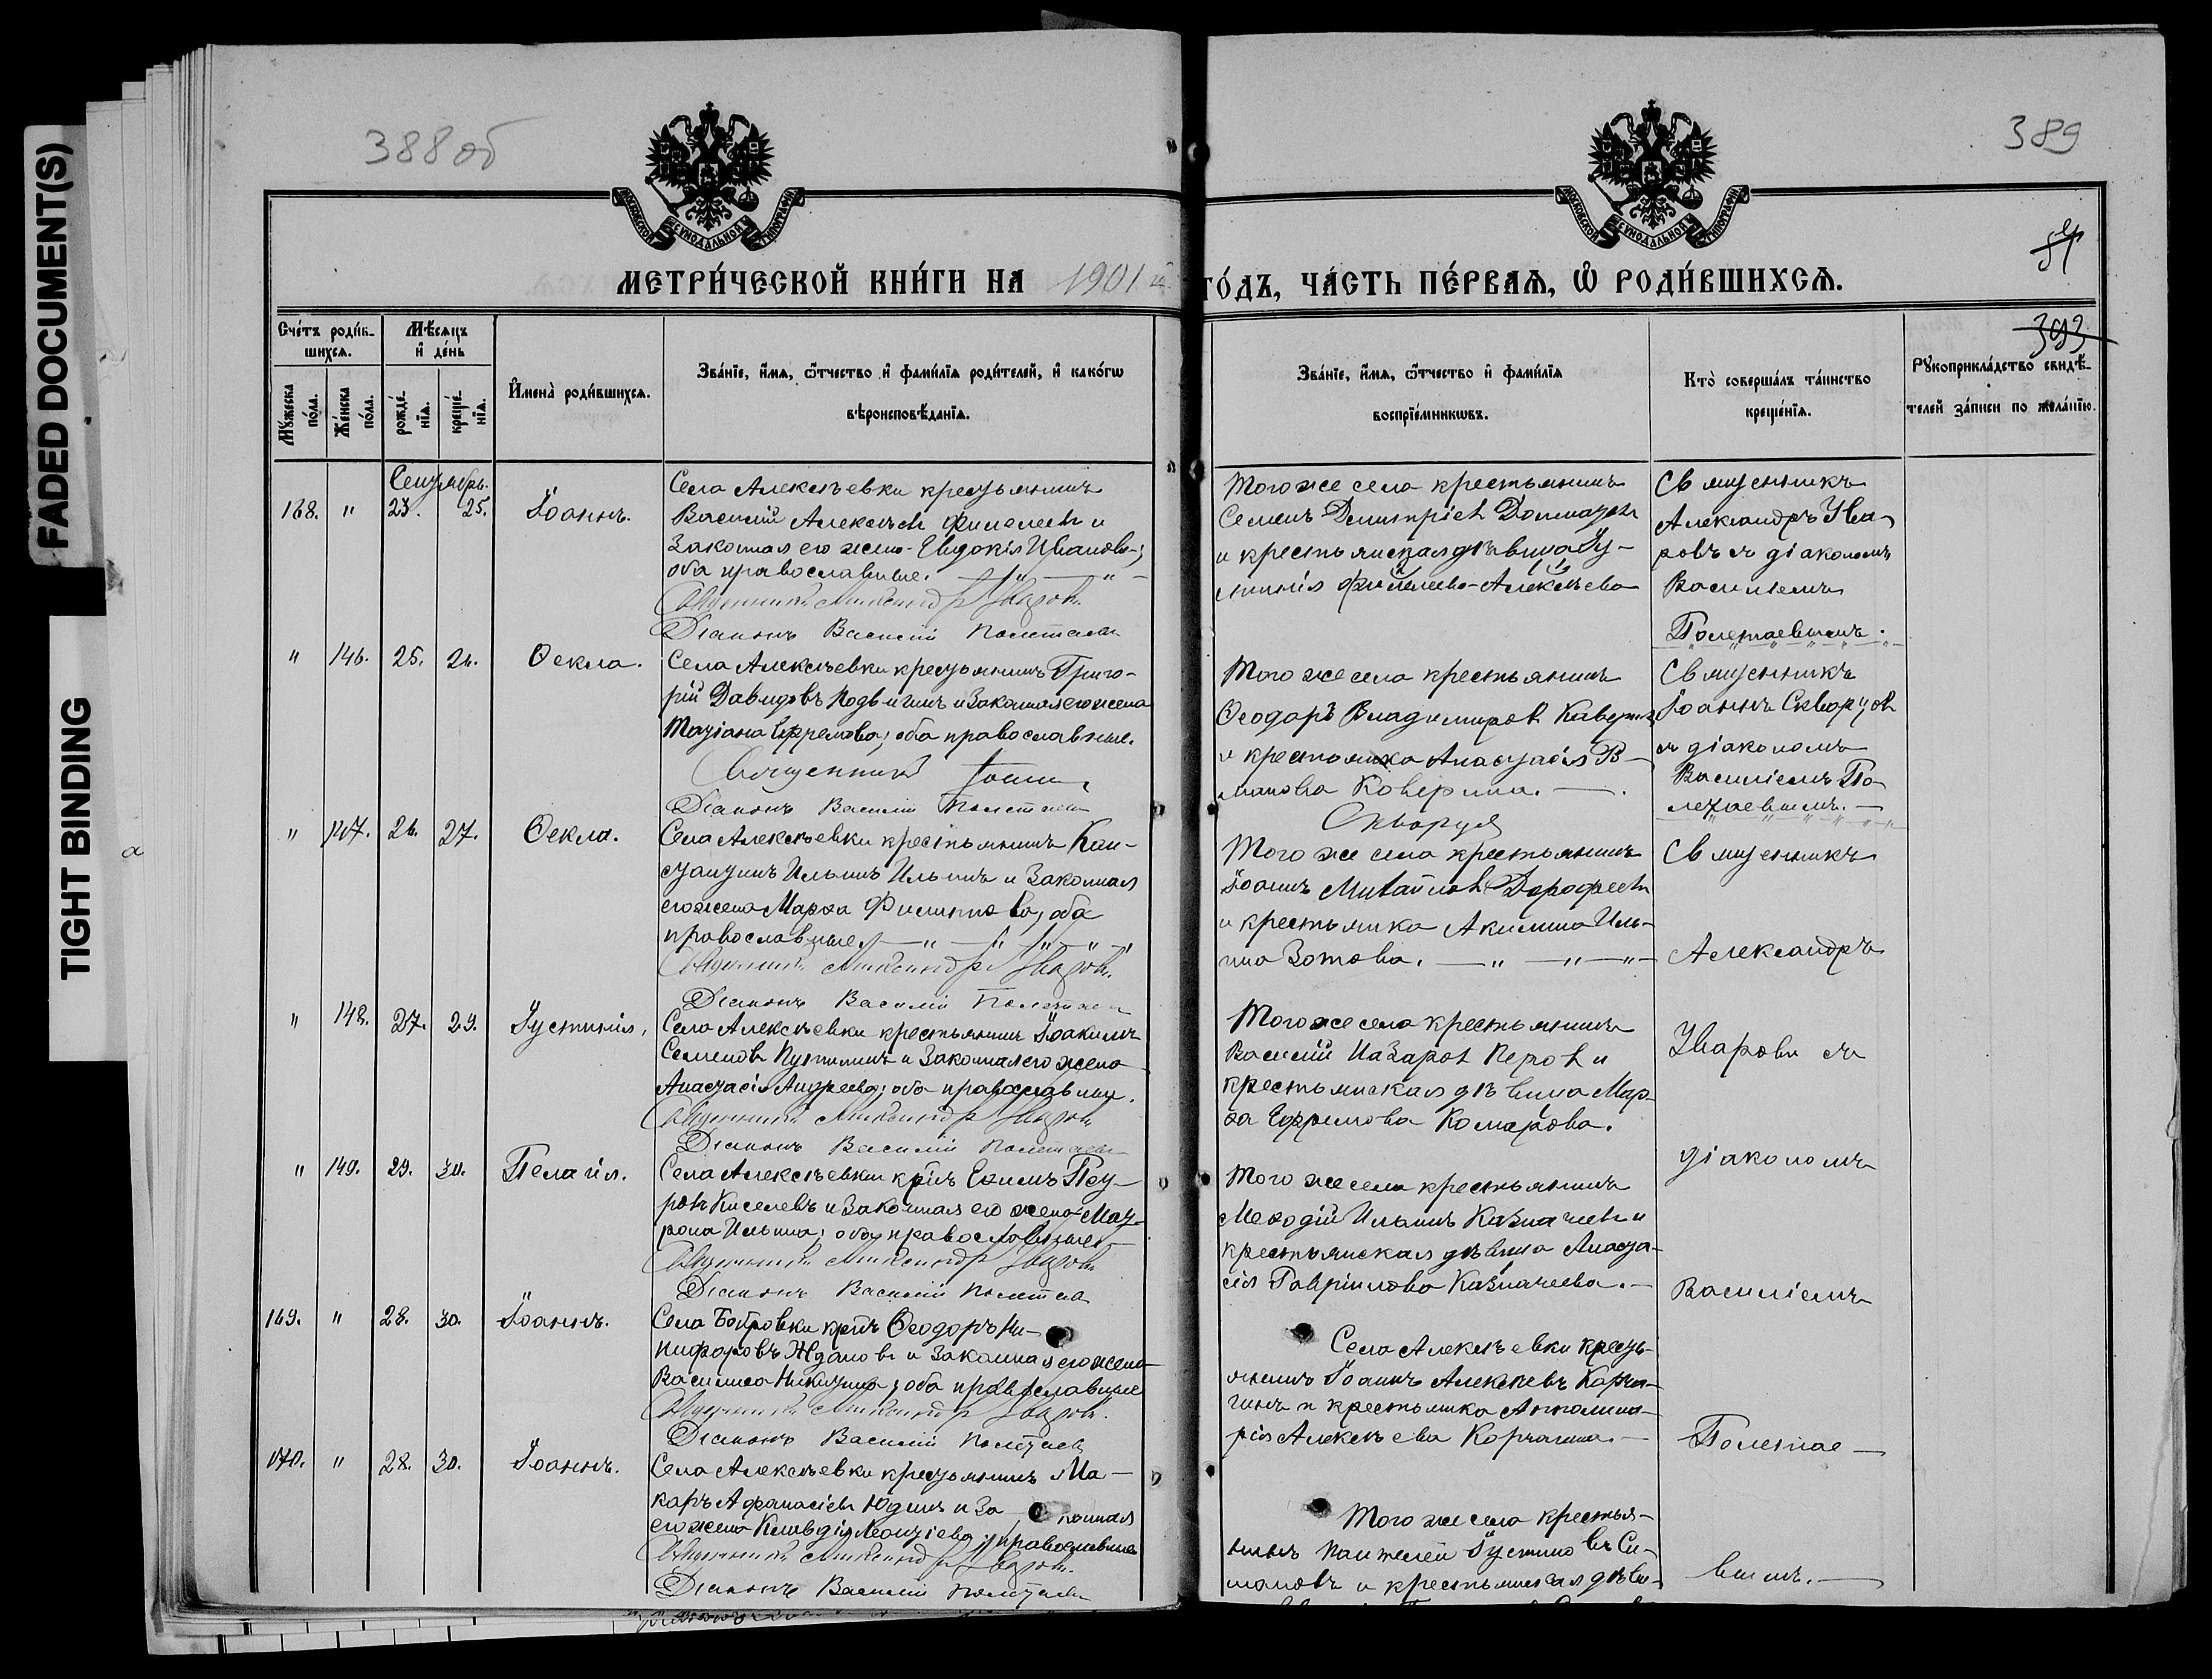 FADED DOCUMENT(S)
TIGHT BINDING
388 об
389
МОСКОВСКОЙ СѴНОДАЛЬНОЙ ТИПОГРАФІИ
МОСКОВСКОЙ СѴНОДАЛЬНОЙ ТИПОГРАФІИ
МЕТРИ́ЧЕСКОЙ КНИ́ГИ НА 1901 й
ГО́ДЪ, ЧА́СТЬ ПЕ́РВАѦ, Ѡ҆ РОДИ́ВШИХСѦ.
393
Сче́тъ роди́в-
шихсѧ.
Мѣ́сѧцъ
и҆ де́нь
Му́жеска
по́ла.
Же́нска
по́ла.
рожде́-
нїѧ.
креще́-
нїѧ.
И҆мена̀ роди́вшихсѧ.
Зва́нїе, и҆́мѧ, ѻ҆́тчество и҆ фами́лїѧ роди́телей, и҆ како́гѡ
вѣроисповѣ́данїѧ.
Зва́нїе, и҆́мѧ, ѻ҆́тчество и҆ фами́лїѧ
воспрїе́мникѡвъ.
Кто̀ соверша́лъ та́инство
креще́нїѧ.
Рꙋкоприкла́дство свидѣ́-
телей за́писи по жела́нїю.
Сентябрь.
168. " 23. 25. Іоаннъ.
Села Алексѣевки крестьянинъ
Василій Алексѣевъ Филелеевъ и
Законная его жена Евдокія Иванова;
оба православные. — " — " —
Священникъ Александръ Уваровъ.
Діаконъ Василій Полетаевъ
Того же села крестьянинъ
Семенъ Димитріевъ
и крестьянская дѣвица Іу-
стинія Филелеева-Алексѣева
Священникъ
Александръ Ува-
ровъ съ діакономъ
Василіемъ
Полетаевымъ.
" 146. 25. 26. Ѳекла.
Села Алексѣевки крестьянинъ Григо-
рій Давидовъ Подвигинъ и Законная его жена
Татіана Ефремова; оба православные.
Священникъ Іоаннъ
Діаконъ Василій Полетаевъ
Того же села крестьянинъ
Ѳеодоръ Владимировъ Каверинъ
и крестьянка Анастасія
Коверина. —
Скворцовъ
Священникъ
Іоаннъ Скворцовъ
съ діакономъ
Василіемъ По-
летаевымъ. —
" 147. 26. 27. Ѳекла.
Села Алексѣевки крестьянинъ Кон-
стантинъ Ильинъ Ильинъ и Законная
его жена Марѳа Филиппова, оба
православные — " — " — " — "
Священникъ Александръ Уваровъ.
Діаконъ Василій Полетаевъ
Того же села крестьянинъ
Іоаннъ Михайловъ Дорофеевъ
и крестьянка Акилина Иль-
ина Зотова. — " — " — " —
Священникъ
Александръ
" 148. 27. 29. Іустинія.
Села Алексѣевки крестьянинъ Іоакимъ
Семеновъ Путилинъ и Законная его жена
Анастасія Андреева; оба православные.
Священникъ Александръ Уваровъ
Діаконъ Василій Полетаевъ
Того же села крестьянинъ
Василій Назаровъ Перовъ и
крестьянская дѣвица Мар-
ѳа Ефремова Комарова.
Уваровъ съ
діакономъ
" 149. 29. 30. Пелагія.
Села Алексѣевки кр꙯нъ Екимъ Пет-
ровъ Киселевъ и Законная его жена Мат-
рона Ильина; оба православные
Священникъ Александръ Уваровъ
Діаконъ Василій Полетаевъ
Того же села крестьянинъ
Меѳодій Ильинъ Казначеевъ и
крестьянская дѣвица Анаста-
сія Гавріилова Казначеева. —
Василіемъ
169. " 28. 30. Іоаннъ.
Села Бобровки кр꙯нъ Ѳеодоръ Ни-
кифоровъ Ждановъ и Законная его жена
Василиса Никитина; оба православные
Священникъ Александръ Уваровъ.
Діаконъ Василій Полетаевъ
Села Алексѣевки кресть-
янинъ Іоаннъ Алексѣевъ Корча-
гинъ и крестьянка Апполина-
рія Алексѣева Корчагина. —
Полетае —
170. " 28. 30. Іоаннъ.
Села Алексѣевки крестьянинъ Ма-
каръ Афанасіевъ Юдинъ и За конная
его жена Клавдія Леонтіева; православные
Священникъ Александръ Уваровъ.
Діаконъ Василій Полетаевъ
Того же села крестья-
нинъ Пантелей Іустиновъ Си-
мановъ и крестьянская дѣви-
вымъ. —